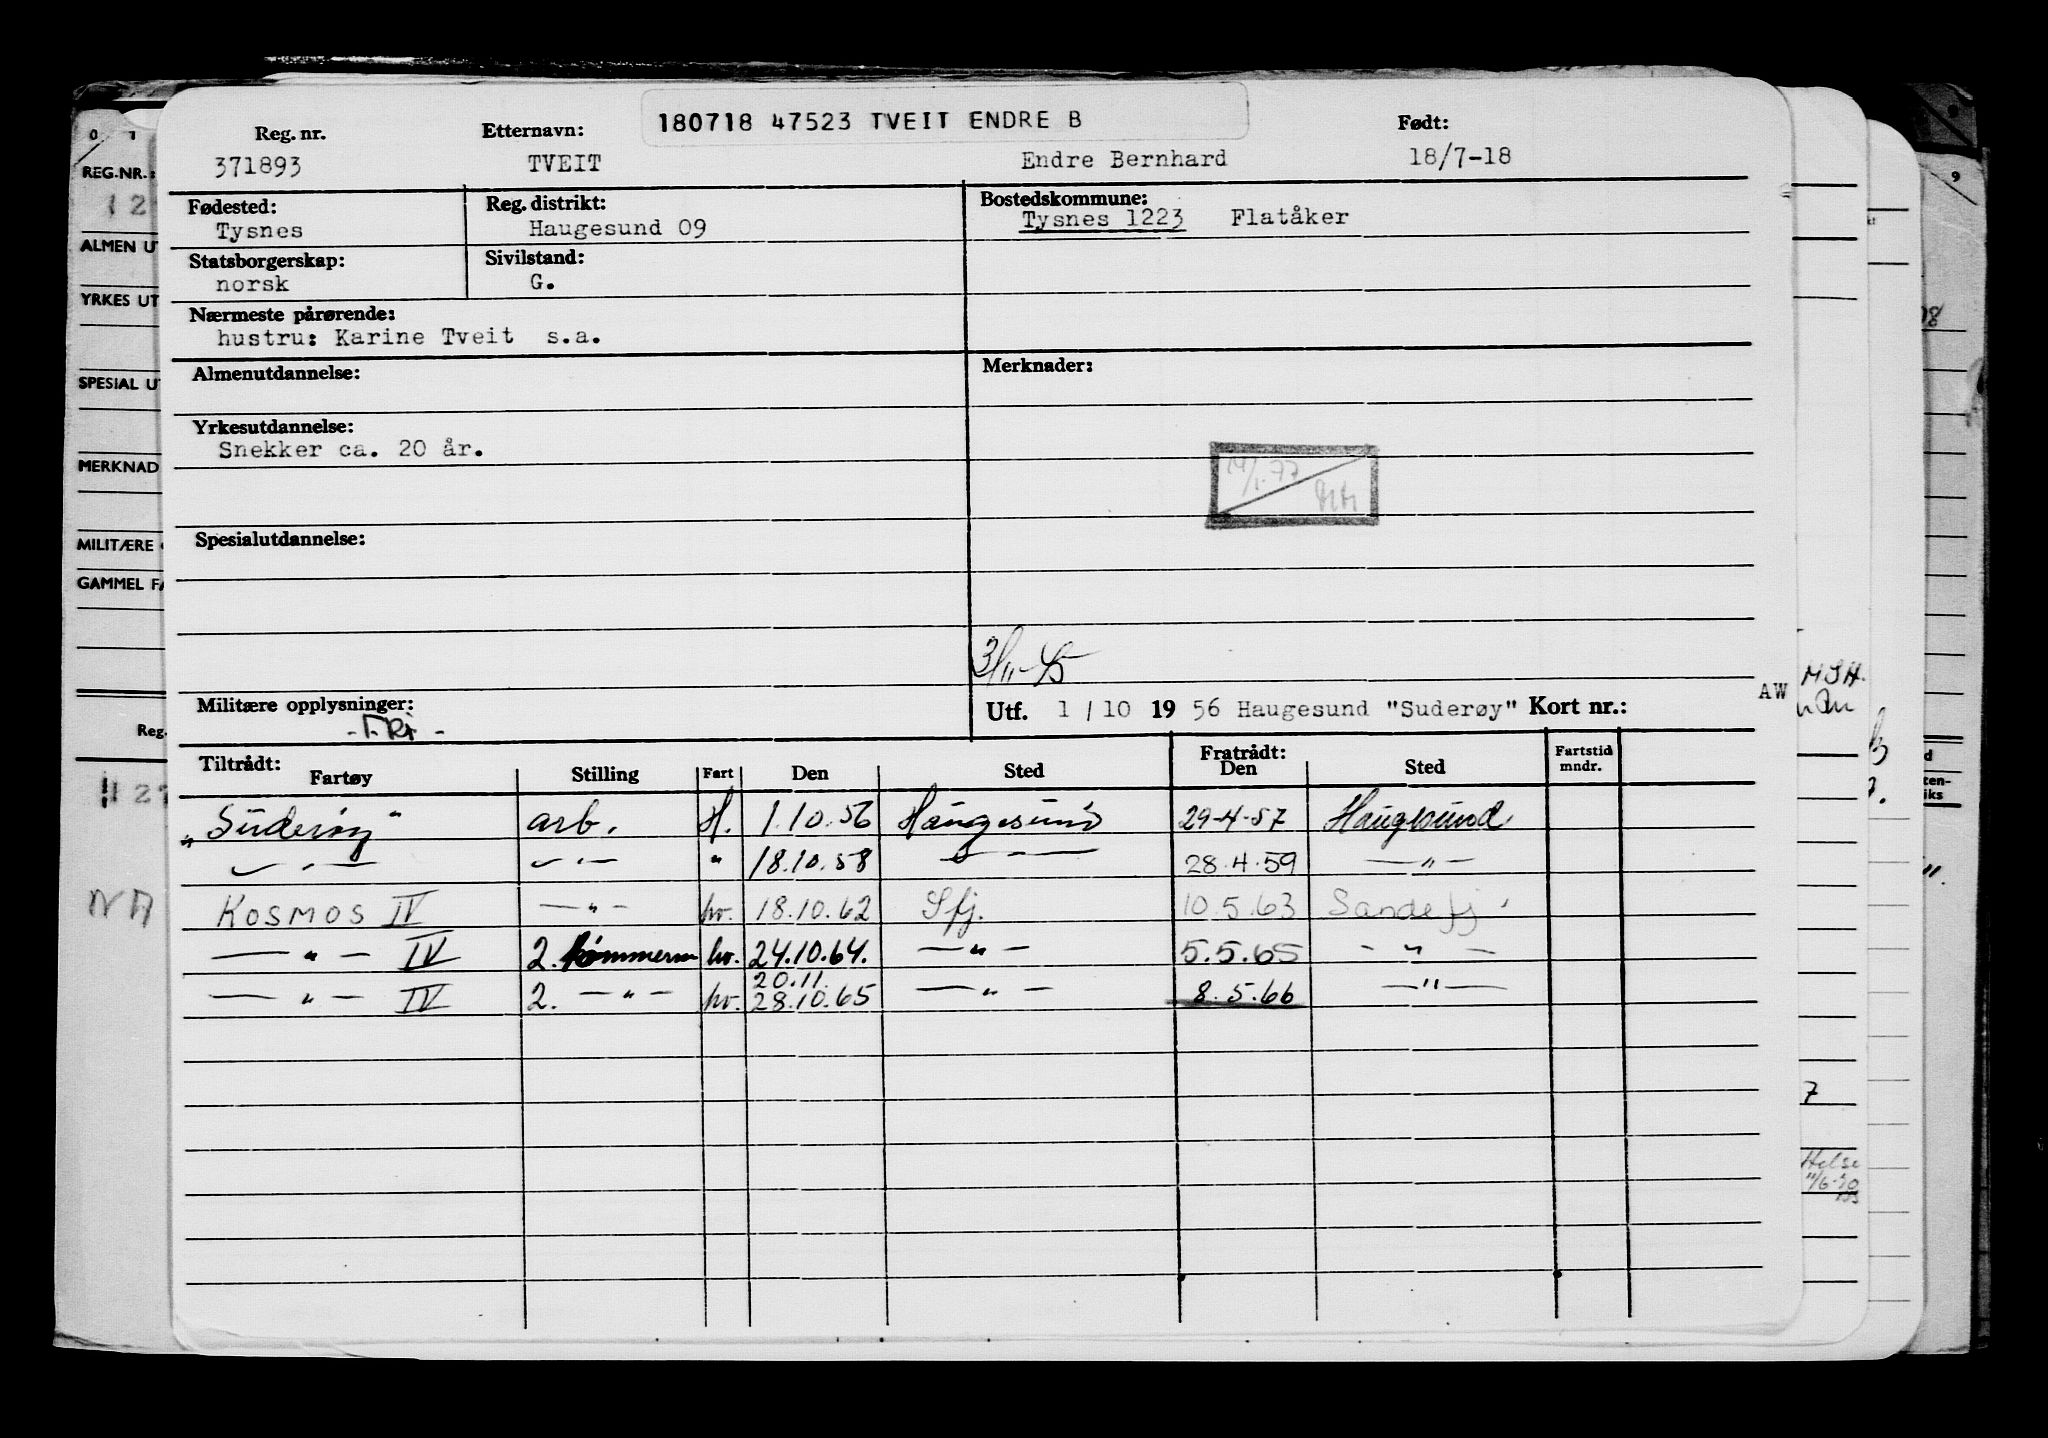 180718 47523 TVEIT ENDRE B
Reg. nr. Etternavn: Født:
371893 TVEIT Endre Bernhard 18/7-18
Fødested: Reg. distrikt: Bostedskommune:
Tysnes Haugesund 09 Tysnes 1223 Flatåker
Statsborgerskap: Sivilstand:
norsk G.
Nærmeste pårørende:
hustru: Karine Tveit s.a.
Almenutdannelse: Merknader:
Yrkesutdannelse:
Snekker ca. 20 år.
14/1.77
Spesialutdannelse:
Militære opplysninger:
- FRI -
Utf. 1 / 10 19 56 Haugesund "Suderøy" Kort nr.:
AW
Tiltrådt: Fratrådt:
Fartøy Stilling Fart Den Sted Den Sted Fartstid mndr.
"Suderøy" arb. H. 1.10.56 Haugesund 29-4-57 Haugesund
— " — — " — " 18.10.58 — " — 28.4.59 — " —
KOSMOS IV — " — hv. 18.10.62 Sfj. 10.5.63 Sandefj.
— " — IV 2. tømmerm hv. 24.10.64. — " — 5.5.65 — " —
20.11.
— " — IV 2. — " — hv. 28.10.65 — " — 8.5.66 — " —
REG.NR.:
ALMEN UT
YRKES UT
SPESIAL UT
MERKNAD
MILITÆRE
GAMMEL FA
Reg.
NA
M.S.H.
7
Helse